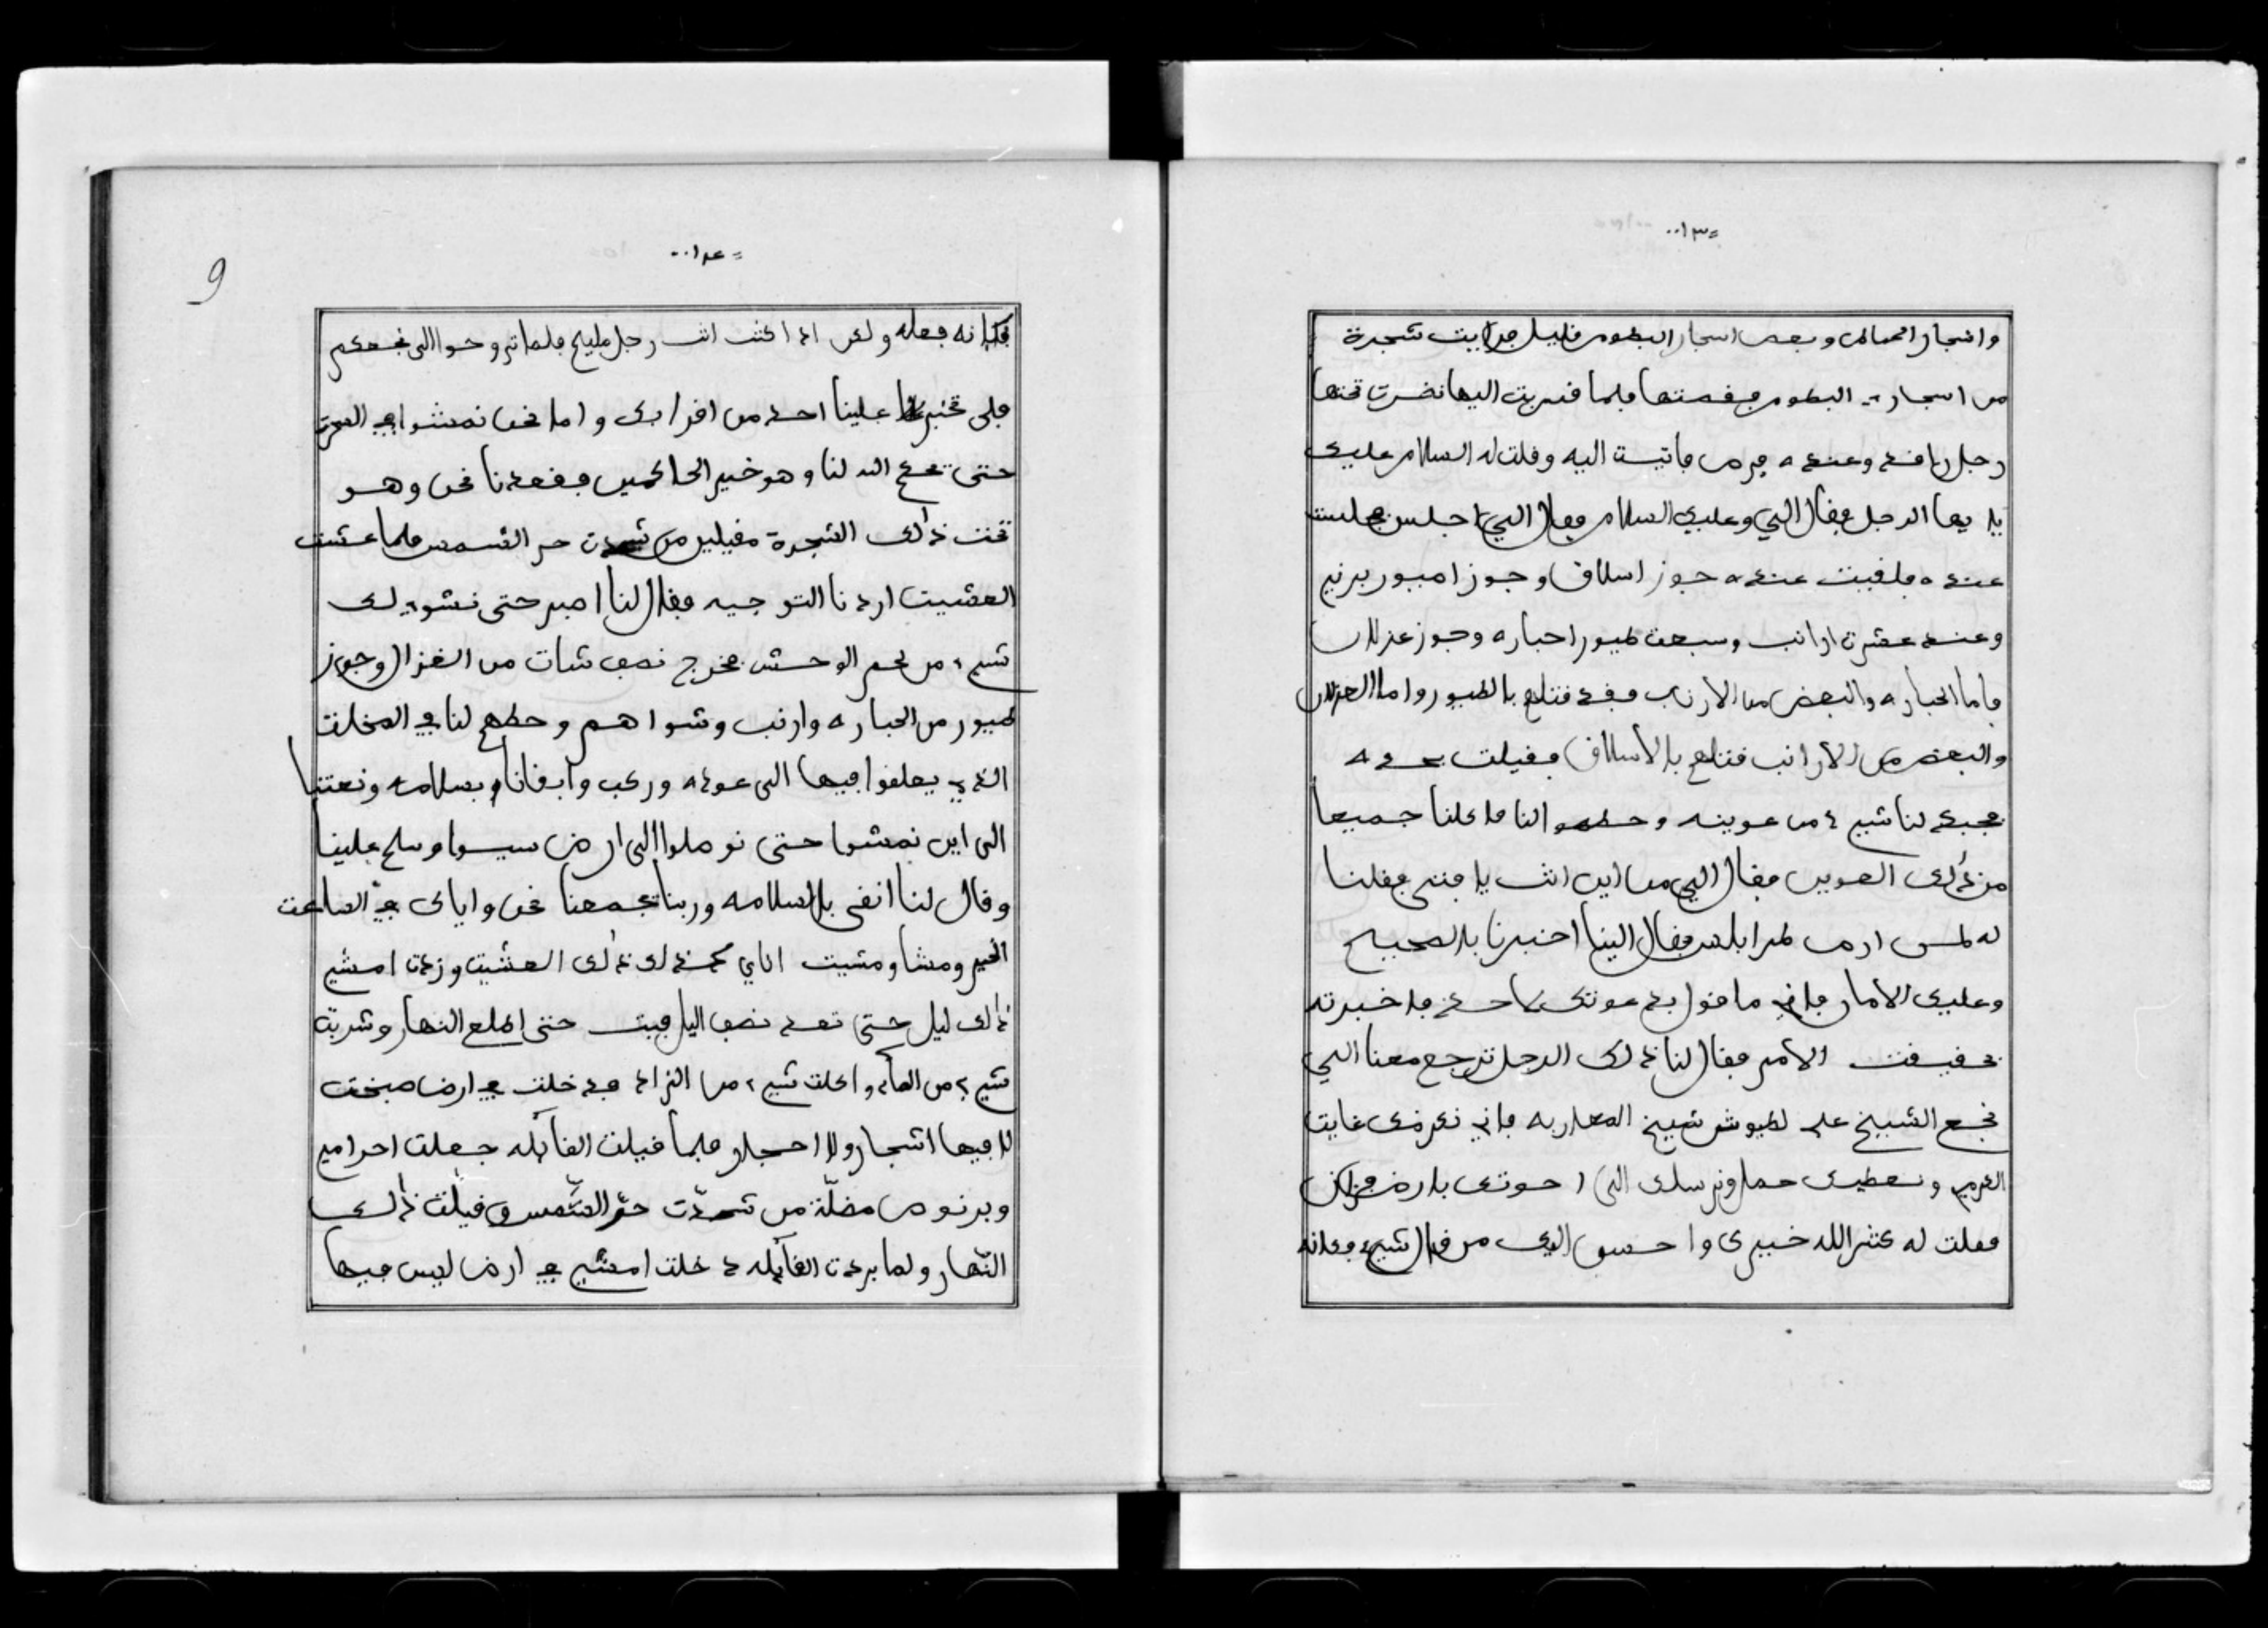 =١٣٠٠
واشجار ... وبعض اشجار البطوم قليل فرايت شجرة
من اشجار البطوم فقصتها فلما قربت اليها نضرت تحتها
رجل راقد وعنده فرس فاتيت اليه وقلت له السلام عليك
يا ايها الرجل فقال الي وعليك السلام فقال الي اجلس فجلست
عنده فلقيت عنده جوز اسلاق وجوز امبور برنيم
وعنده عشرت ارانب وسبعت طيور احباره وجوز غزلان
فاما الحباره والبعض من الارنب فقد قتلهم بالطيور واما الغزلان
والبعض من الارانب قتلهم بالاسلاق فقيلت بحده
فجبد لنا شيء من عوينه وحطه النا فاكلنا جميعا
من ذلك العوين فقال الي من اين انت يا فتى فقلنا
له لمن ارض طرابلس فقال الينا اخبرنا بالصحيح
وعليك الامان فاني ما نقول بدعوتك لاحد فاخبرته
بحقيقت الامر فقال لنا ذلك الرجل ترجع معنا الي
نجع الشيخ علي لطيوش شيخ المغاربه فاني نكرمك غايت
الكرم ونعطيك حمار ونرسلك الى اخوتك بارض فزان
فقلت له كثر الله خيرك واحسن اليك من قال شيء فكانه
=١٤٠٠
9
فكانه فعله ولكن اذا كنت انت رجل مليح فلما تروحوا الى نجعكم
فلى تخبر علينا احد من اقرابك واما نحن نمشوا في العرت
حتى يحكم الله لنا وهو خير الحاكمين فقعدنا نحن وهو
تحت ذلك الشجرة مقيلين من شدت حر الشمس فلما عشت
العشيت اردنا التوجيه فقال لنا اصبر حتى نشوي لك
شيء من لحم الوحش فخرج نصف شات من الغزال وجوز
طيور من الحباره وارنب وشواهم وحطهم لنا في المخلت
الذي يعلفوا فيها الى عوده وركب وابقانا بسلامه ونعتنا
الى اين نمشوا حتى نوصلوا الى ارض سيوا وسلم علينا
وقال لنا ابقى بالسلامه وربنا يجمعنا نحن واياك في الساعت
الخير ومشا ومشيت اناي كذلك ذلك العشيت وزدت امشي
ذلك ليل حتى تعد نصف اليل فبت حتى اطلع النهار وشربت
شيء من الماء واكلت شيء من الزاد فدخلت في ارض صبخت
لا فيها اشجار ولا احجار فلما قيلت القائله جعلت احرامي
وبرنوص مضلّة من شدّت حرّ الشّمس وقيلت ذلك
النّهار ولما بردت القائله دخلت امشي في ارض ليس فيها